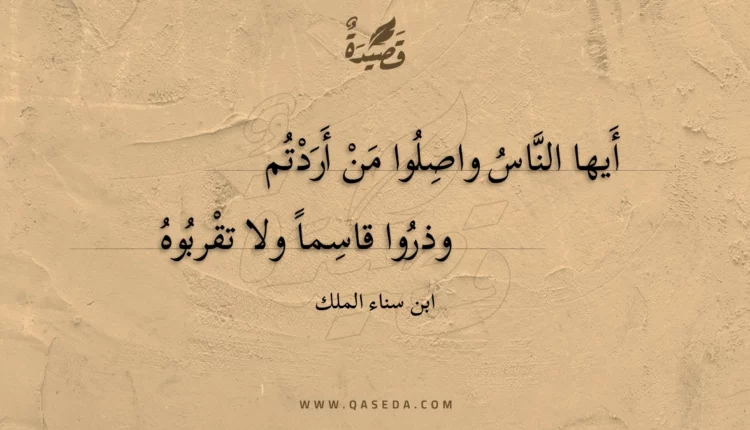 قَصِيدَةٌ
أَيها النَّاسُ واصِلُوا مَنْ أَرَدْتُم
وذرُوا قاسِماً ولا تقْربُوهُ
ابن سناء الملك
WWW.QASEDA.COM